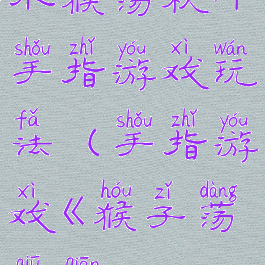 猴荡秋
shǒu zhǐ yóu xì wán
手指游戏玩
fǎ shǒu zhǐ yóu
法（手指游
xì hóu zǐ dàng
戏《猴子荡
qiū qiān